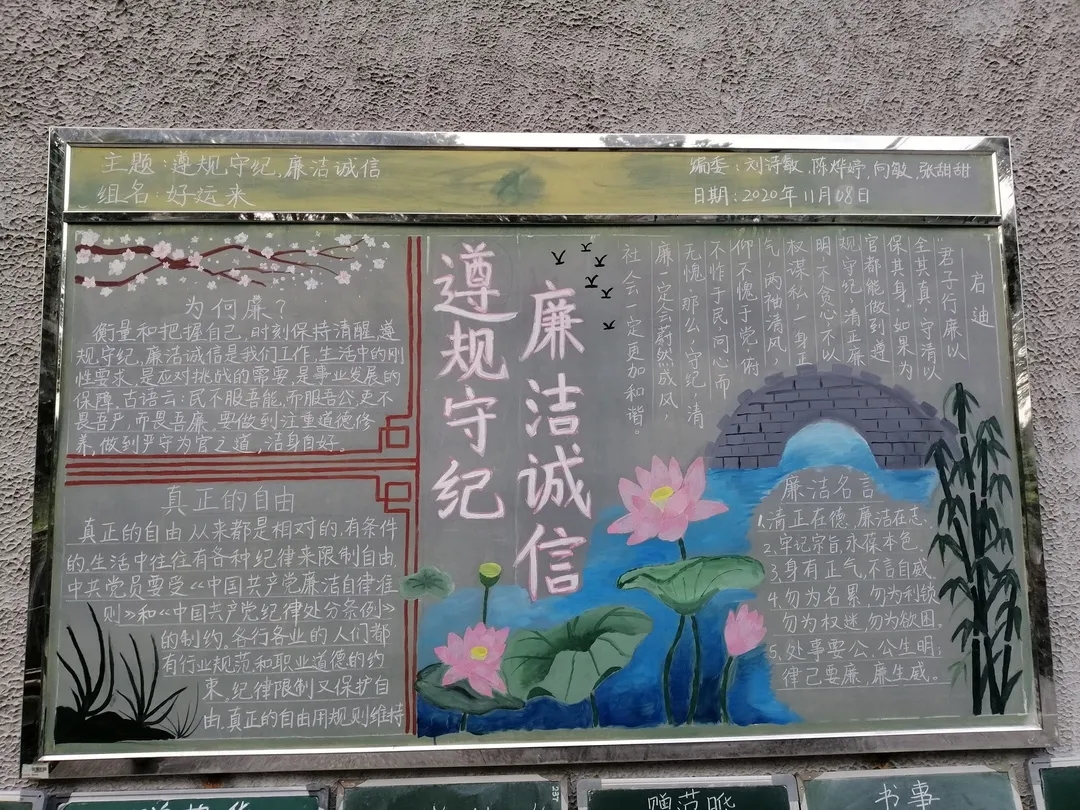 主题：遵规守纪，廉洁诚信
组名：好运来
编委：刘诗敏，陈烨婷，向敏，张甜甜
日期：2020年11月08日
为何廉？
衡量和把握自己，时刻保持清醒，遵
规守纪，廉洁诚信是我们工作，生活中的刚
性要求，是应对挑战的需要，是事业发展的
保障，古语云：民不服吾能，而服吾公，吏不
畏吾严，而畏吾廉，要做到注重道德修
养，做到严守为官之道，洁身自好。
真正的自由
真正的自由从来都是相对的，有条件
的，生活中往往有各种纪律来限制自由，
中共党员要受《中国共产党廉洁自律准
则》和《中国共产党纪律处分条例》
的制约。各行各业的人们都
有行业规范和职业道德的约
束，纪律限制又保护自
由，真正的自由用规则维持
遵规守纪
廉洁诚信
启迪
君子行廉以
全其真，守清以
保其身，如果为
官都能做到遵
规守纪，清正廉
明，不贪心，不以
权谋私，一身正
气，两袖清风，
仰不愧于党，俯
不怍于民，问心而
无愧，那么，守纪，清
廉一定会蔚然成风，
社会一定更加和谐。
廉洁名言
1，清正在德，廉洁在志，
2，牢记宗旨，永葆本色，
3，身有正气，不言自威，
4，勿为名累，勿为利锁
勿为权迷，勿为欲困，
5，处事要公，公生明；
律己要廉，廉生威。
237
赠范晔
书事